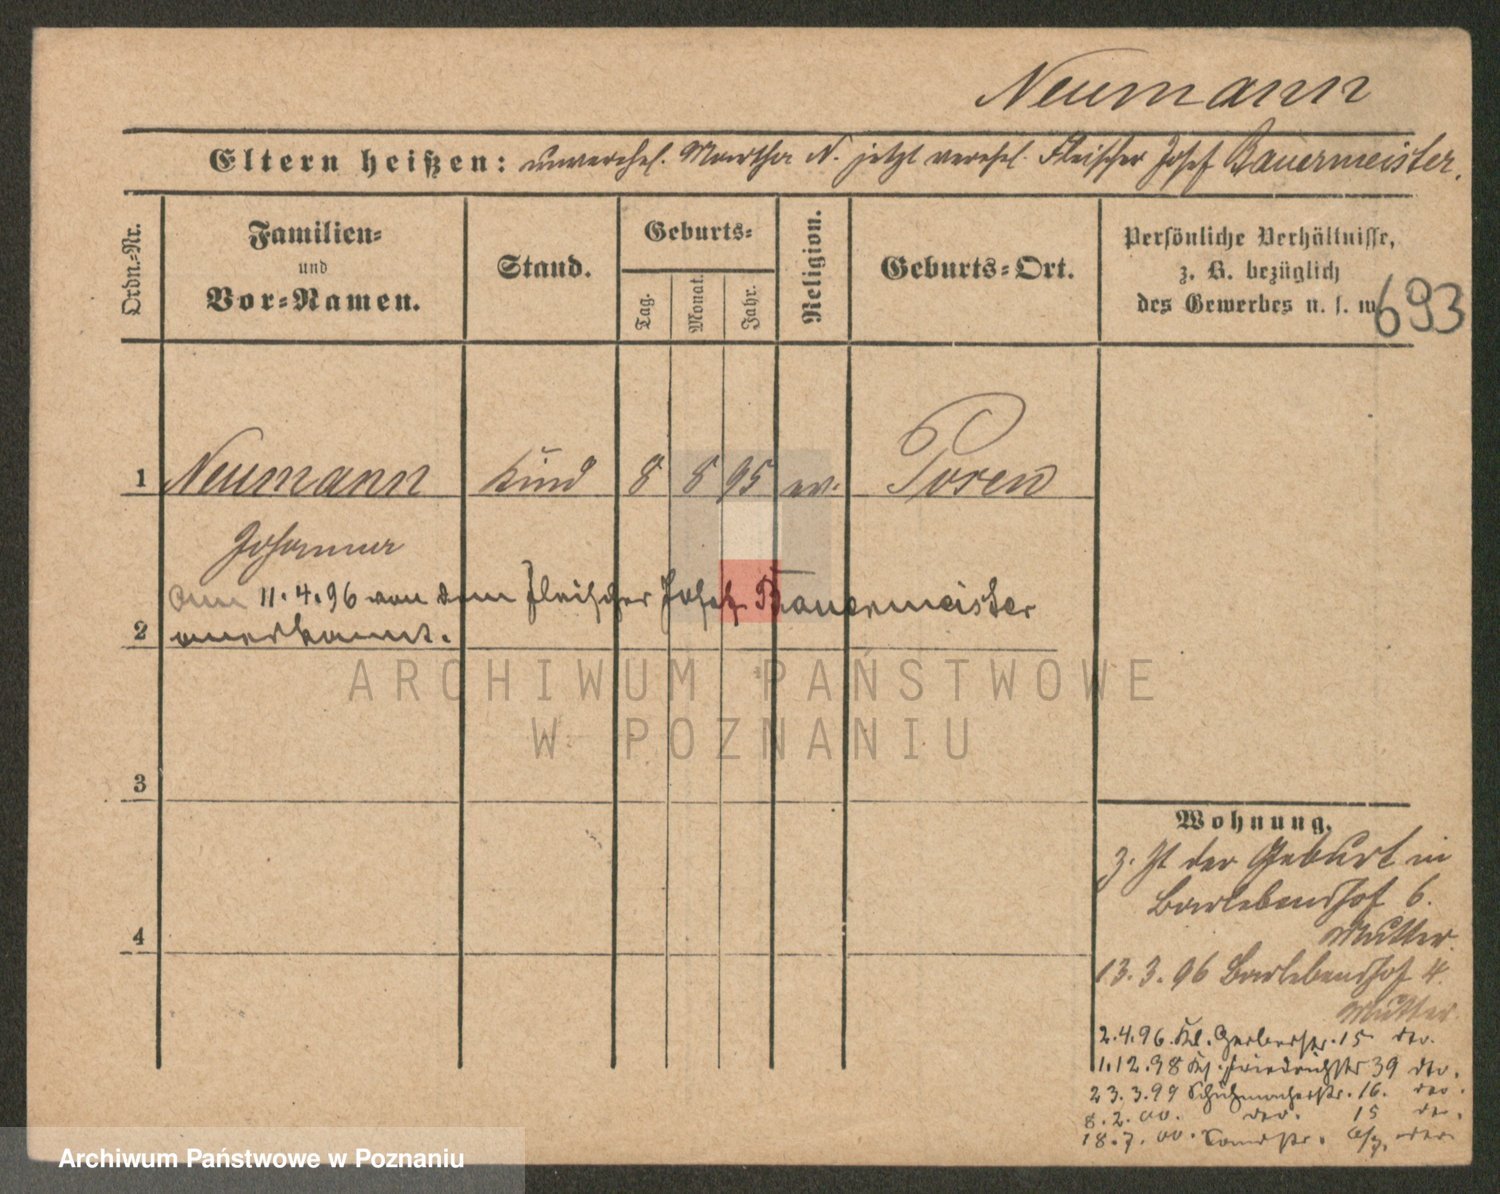 Neumann
Eltern heißen: unverehel. Martha N. jetzt verehel. Fleischer Josef Bauermeister.
Ordn.-Nr.
Familien-
und
Vor-Namen.
Stand.
Geburts-
Tag.
Monat.
Jahr.
Religion.
Geburts-Ort.
Persönliche Verhältnisse,
z. B. bezüglich
des Gewerbes u. s. w.
693
1 Neumann Kind 8 8 95 ev. Posen
Johanna
am 11.4.96 von dem Fleischer Josef Bauermeister
2 anerkannt.
ARCHIWUM PAŃSTWOWE
W POZNANIU
3
4
Wohnung.
z. Zt der Geburt in
Barlebenshof 6.
Mutter.
13.3.96 Barlebenshof 4.
Mutter.
2.4.96. Kl. Gerberstr. 15
1.12.98 Friedrichstr 39
23.3.99 Schuhmacherstr. 16.
8.2.00. 15
18.7.00.
Archiwum Państwowe w Poznaniu